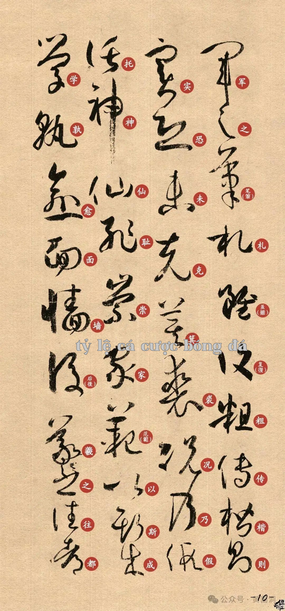 軍之筆札雖復粗傳楷則
實恐未克箕裘況乃假
託神仙恥崇家範以斯成
學孰愈面牆後羲之往都
tỷ lệ cá cược bóng đá
公众号
-10-